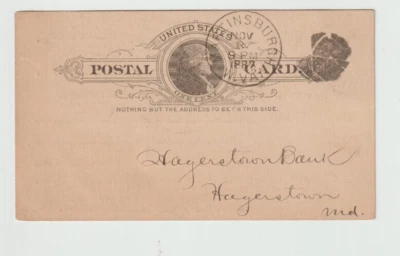 UNITED STATES
POSTAL CARD.
ONE CENT
NOTHING BUT THE ADDRESS TO BE ON THIS SIDE.
INSBURGH
NOV
9 PM
W.VA.
Hagerstown Bank
Hagerstown
Md.